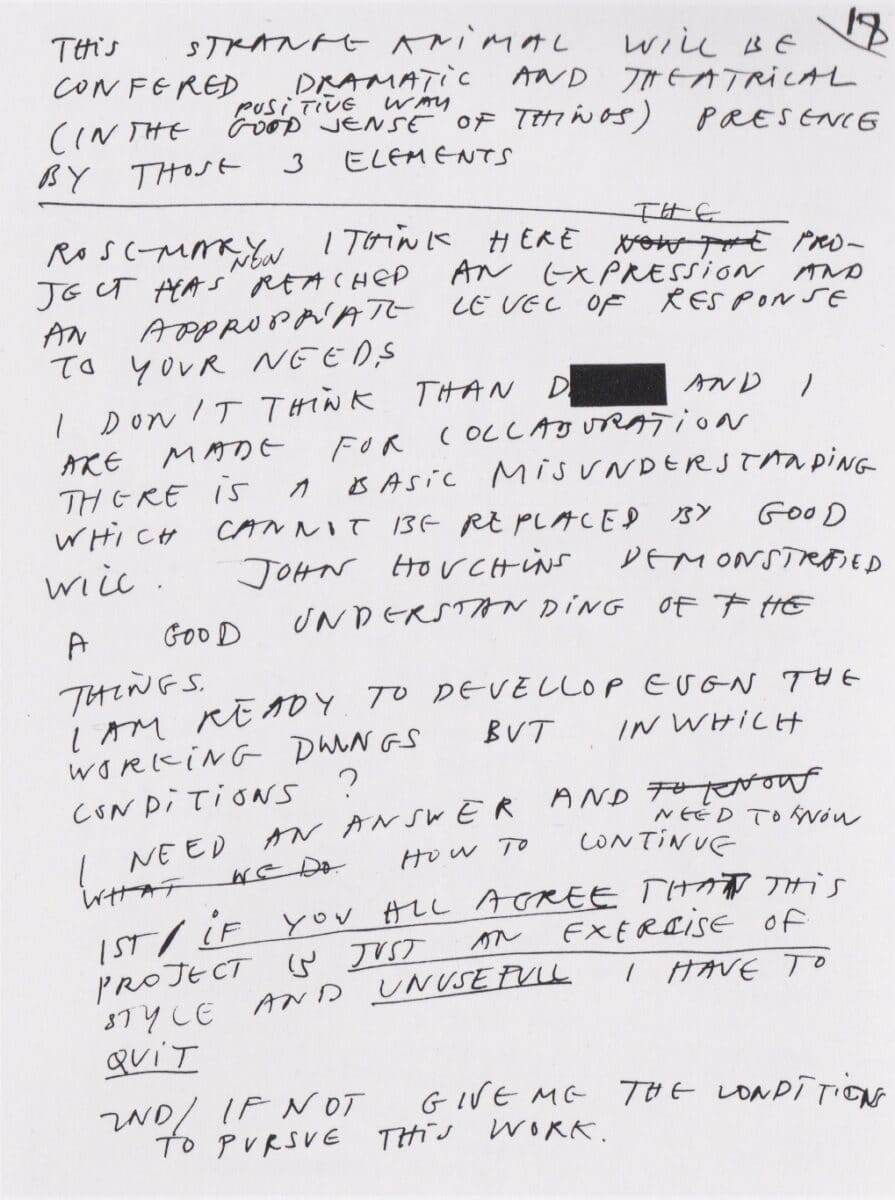 18
THIS STRANGE ANIMAL WILL BE
CONFERED DRAMATIC AND THEATRICAL
POSITIVE WAY
(IN THE GOOD SENSE OF THINGS) PRESENCE
BY THOSE 3 ELEMENTS
THE
ROSE-MARY I THINK HERE NOW THE PRO-
NOW
JECT HAS REACHED AN EXPRESSION AND
AN APPROPRIATE LEVEL OF RESPONSE
TO YOUR NEEDS
I DON'T THINK THAN D AND I
ARE MADE FOR COLLABORATION
THERE IS A BASIC MISUNDERSTANDING
WHICH CANNOT BE REPLACED BY GOOD
WILL. JOHN HOUCHINS DEMONSTRATED
A GOOD UNDERSTANDING OF THE
THINGS.
I AM READY TO DEVELLOP EVEN THE
WORKING DWINGS BUT IN WHICH
CONDITIONS ?
I NEED AN ANSWER AND TO KNOW
NEED TO KNOW
WHAT WE DO HOW TO CONTINUE
1ST/ IF YOU ALL AGREE THAT THIS
PROJECT IS JUST AN EXERCISE OF
STYLE AND UNUSEFULL I HAVE TO
QUIT
2ND/ IF NOT GIVE ME THE CONDITIONS
TO PURSUE THIS WORK.